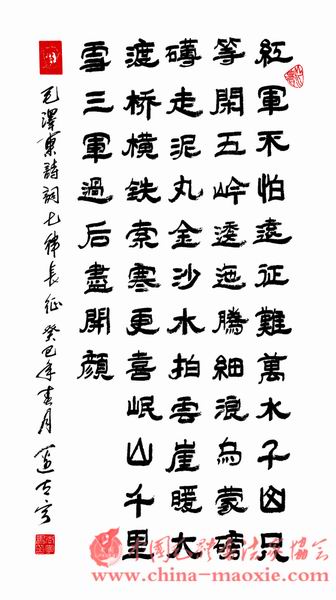 紅軍不怕遠征難萬水千山只
等閑五岭逶迤騰細浪烏蒙磅
礴走泥丸金沙水拍雲崖暖大
渡桥横铁索寒更喜岷山千里
雪三軍過后盡開顔
毛澤東詩詞七律長征癸巳年春月
中國毛體書法家協會
www.china-maoxie.com